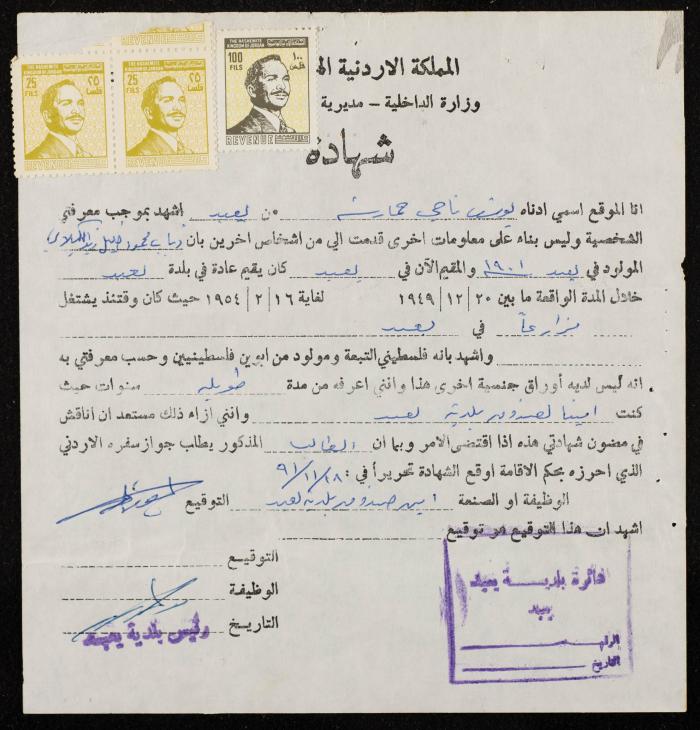 THE HASHEMITE KINGDOM OF JORDAN
25 FILS
٢٥ فلسا
REVENUE
THE HASHEMITE KINGDOM OF JORDAN
25 FILS
٢٥ فلسا
REVENUE
THE HASHEMITE KINGDOM OF JORDAN
100 FILS
١٠٠ فلس
REVENUE
المملكة الاردنية
وزارة الداخلية - مديرية
شهادة
انا الموقع اسمي ادناه يوسف ناجي حمارشه من يعبد اشهد بموجب معرفتي
الشخصية وليس بناء على معلومات اخرى قدمت الي من اشخاص اخرين بان محمود
المولود في يعبد ١٩٠١ والمقيم الآن في يعبد كان يقيم عادة في بلدة يعبد
خلال المدة الواقعة ما بين ٢٠ | ١٢ | ١٩٤٩ لغاية ١٦ | ٢ | ١٩٥٤ حيث كان وقتئذ يشتغل
مزارعاً في يعبد
واشهد بانه فلسطيني التبعة ومولود من ابوين فلسطينيين وحسب معرفتي به
انه ليس لديه أوراق جنسية اخرى هذا وانني اعرفه من مدة طويله سنوات حيث
كنت امينا لصندوق بلدية يعبد وانني ازاء ذلك مستعد ان أناقش
في مضون شهادتي هذه اذا اقتضى الامر وبما ان الطالب المذكور يطلب جواز سفره الاردني
الذي احرزه بحكم الاقامة اوقع الشهادة تحريراً في : ١٨/١١/٩١
الوظيفة او الصنعة امين صندوق بلدية يعبد التوقيع
اشهد ان هذا التوقيع هو توقيع
التوقيع
الوظيفة
التاريخ
رئيس بلدية يعبد
دائرة بلدية يعبد
يعبد
الرقم
التاريخ